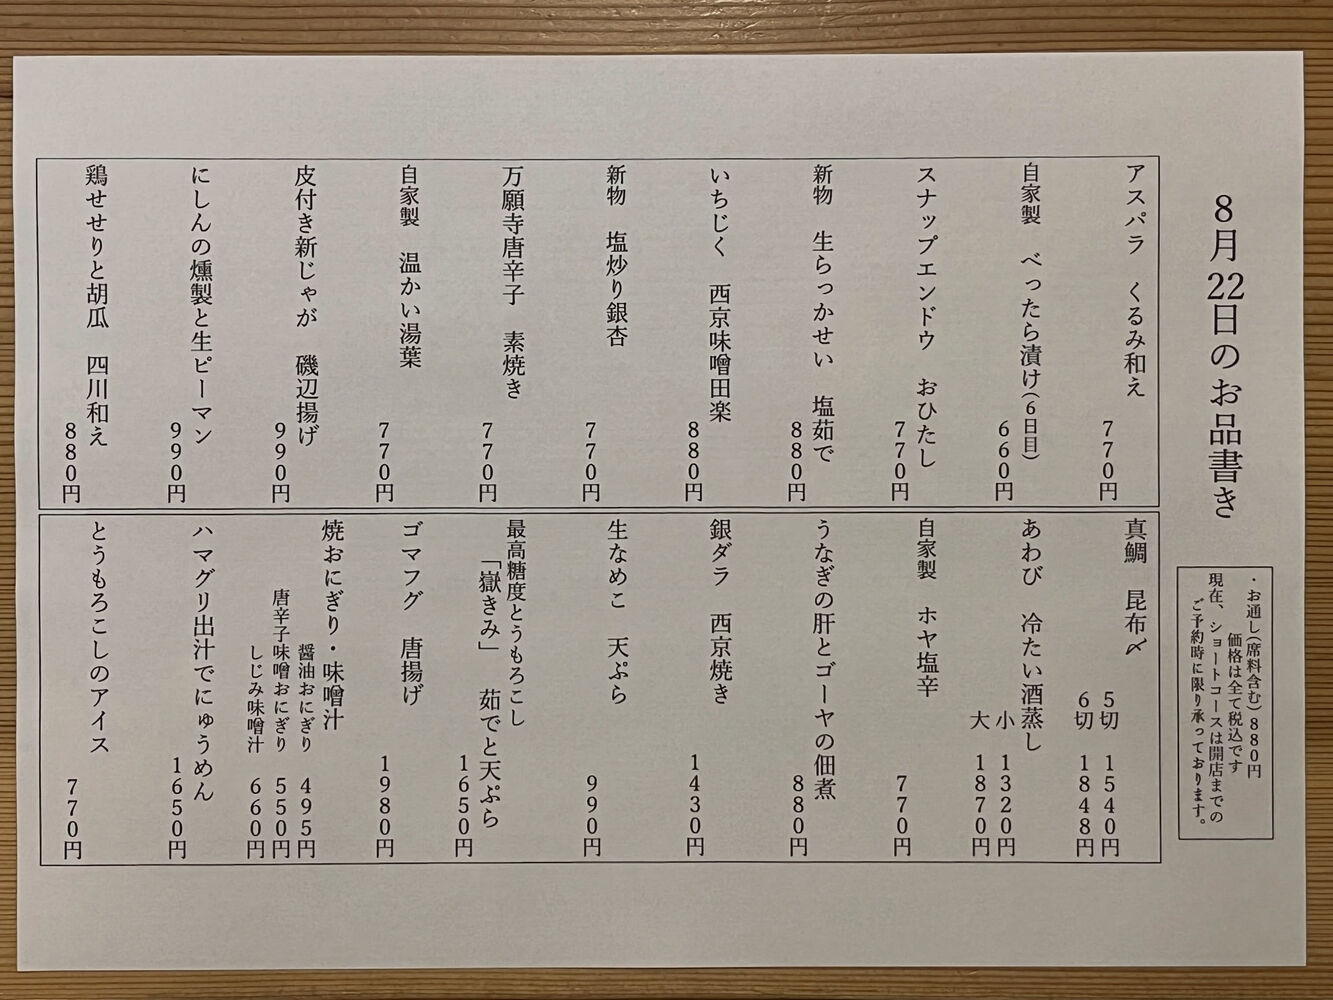 8月22日のお品書き
・お通し(席料含む)880円
価格は全て税込です
現在、ショートコースは開店までの
ご予約時に限り承っております。
アスパラ くるみ和え 770円
自家製 べったら漬け(6日目) 660円
スナップエンドウ おひたし 770円
新物 生らっかせい 塩茹で 880円
いちじく 西京味噌田楽 880円
新物 塩炒り銀杏 770円
万願寺唐辛子 素焼き 770円
自家製 温かい湯葉 770円
皮付き新じゃが 磯辺揚げ 990円
にしんの燻製と生ピーマン 990円
鶏せせりと胡瓜 四川和え 880円
真鯛 昆布〆
5切 1540円
6切 1848円
あわび 冷たい酒蒸し
小 1320円
大 1870円
自家製 ホヤ塩辛 770円
うなぎの肝とゴーヤの佃煮 880円
銀ダラ 西京焼き 1430円
生なめこ 天ぷら 990円
最高糖度とうもろこし
「嶽きみ」 茹でと天ぷら 1650円
ゴマフグ 唐揚げ 1980円
焼おにぎり・味噌汁
醤油おにぎり 495円
唐辛子味噌おにぎり 550円
しじみ味噌汁 660円
ハマグリ出汁でにゅうめん 1650円
とうもろこしのアイス 770円